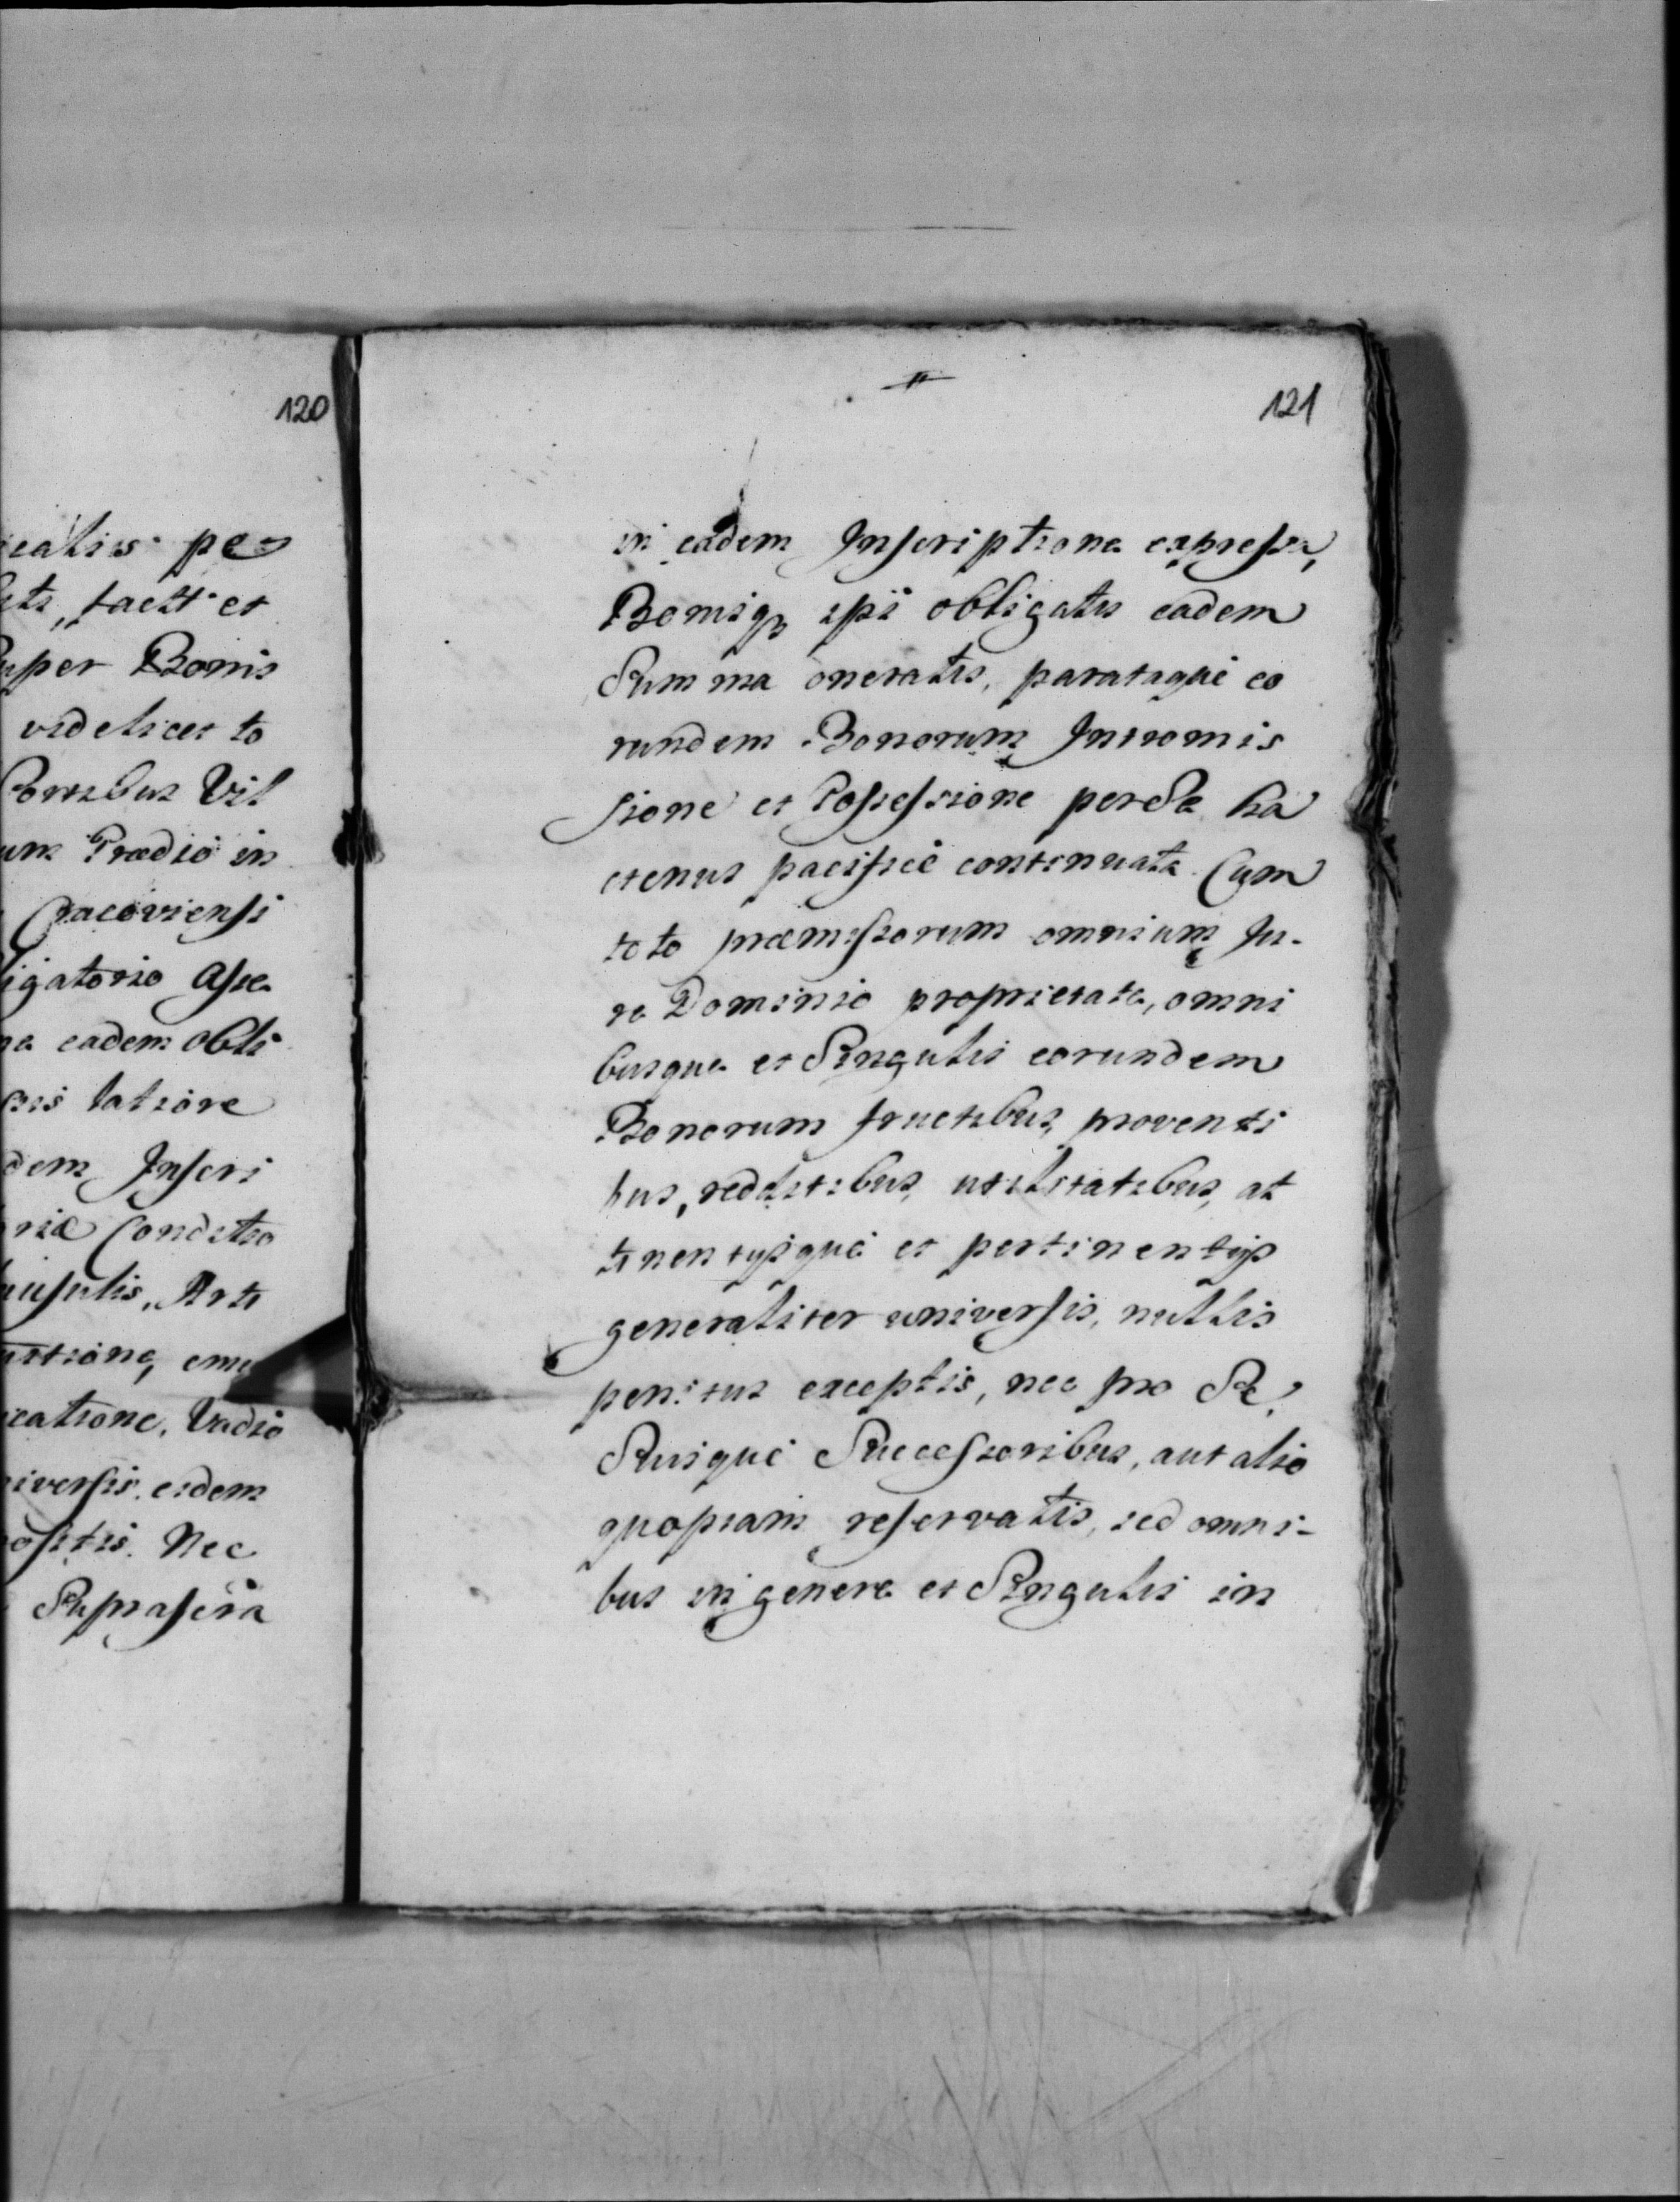 120
ealis per
, facit et
uper Bonis
videlicet to
Vil
um Prædio in
Cracoviensi
igatorio asse
eadem obli
latiore
dem Inscri
Conditio
Arti
catione, Vadio
iversis eidem
ositis. Nec
Suprascri
121
in eadem Inscriptione expressa,
Bonisq3 ipsi obligatis eadem
Summa oneratis, parataque eo
rundem Bonorum Intromis
sione et Possessione per Se ha
ctenus pacifice continuata. Cum
toto præmissorum omnium Ju-
re Dominio proprietate, omni
busque et Singulis eorundem
Bonorum fructibus, proventi
bus, redditibus, utilitatibus, at
tinentijsque et pertinentijs
generaliter universis, nullis
penitus exceptis, nec pro Se,
Suisque Successoribus, aut alio
quopiam reservatis, sed omni-
bus in genere et Singulis in